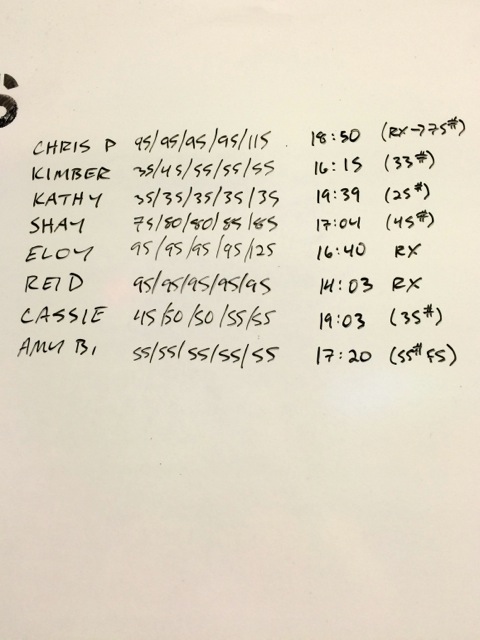 S
CHRIS P 95/95/95/95/115 18:50 (RX→75#)
KIMBER 35/45/55/55/55 16:15 (33#)
KATHY 35/35/35/35/35 19:39 (25#)
SHAY 75/80/80/85/85 17:04 (45#)
ELOY 95/95/95/95/125 16:40 RX
REID 95/95/95/95/95 14:03 RX
CASSIE 45/50/50/55/55 19:03 (35#)
AMY B. 55/55/55/55/55 17:20 (55# FS)